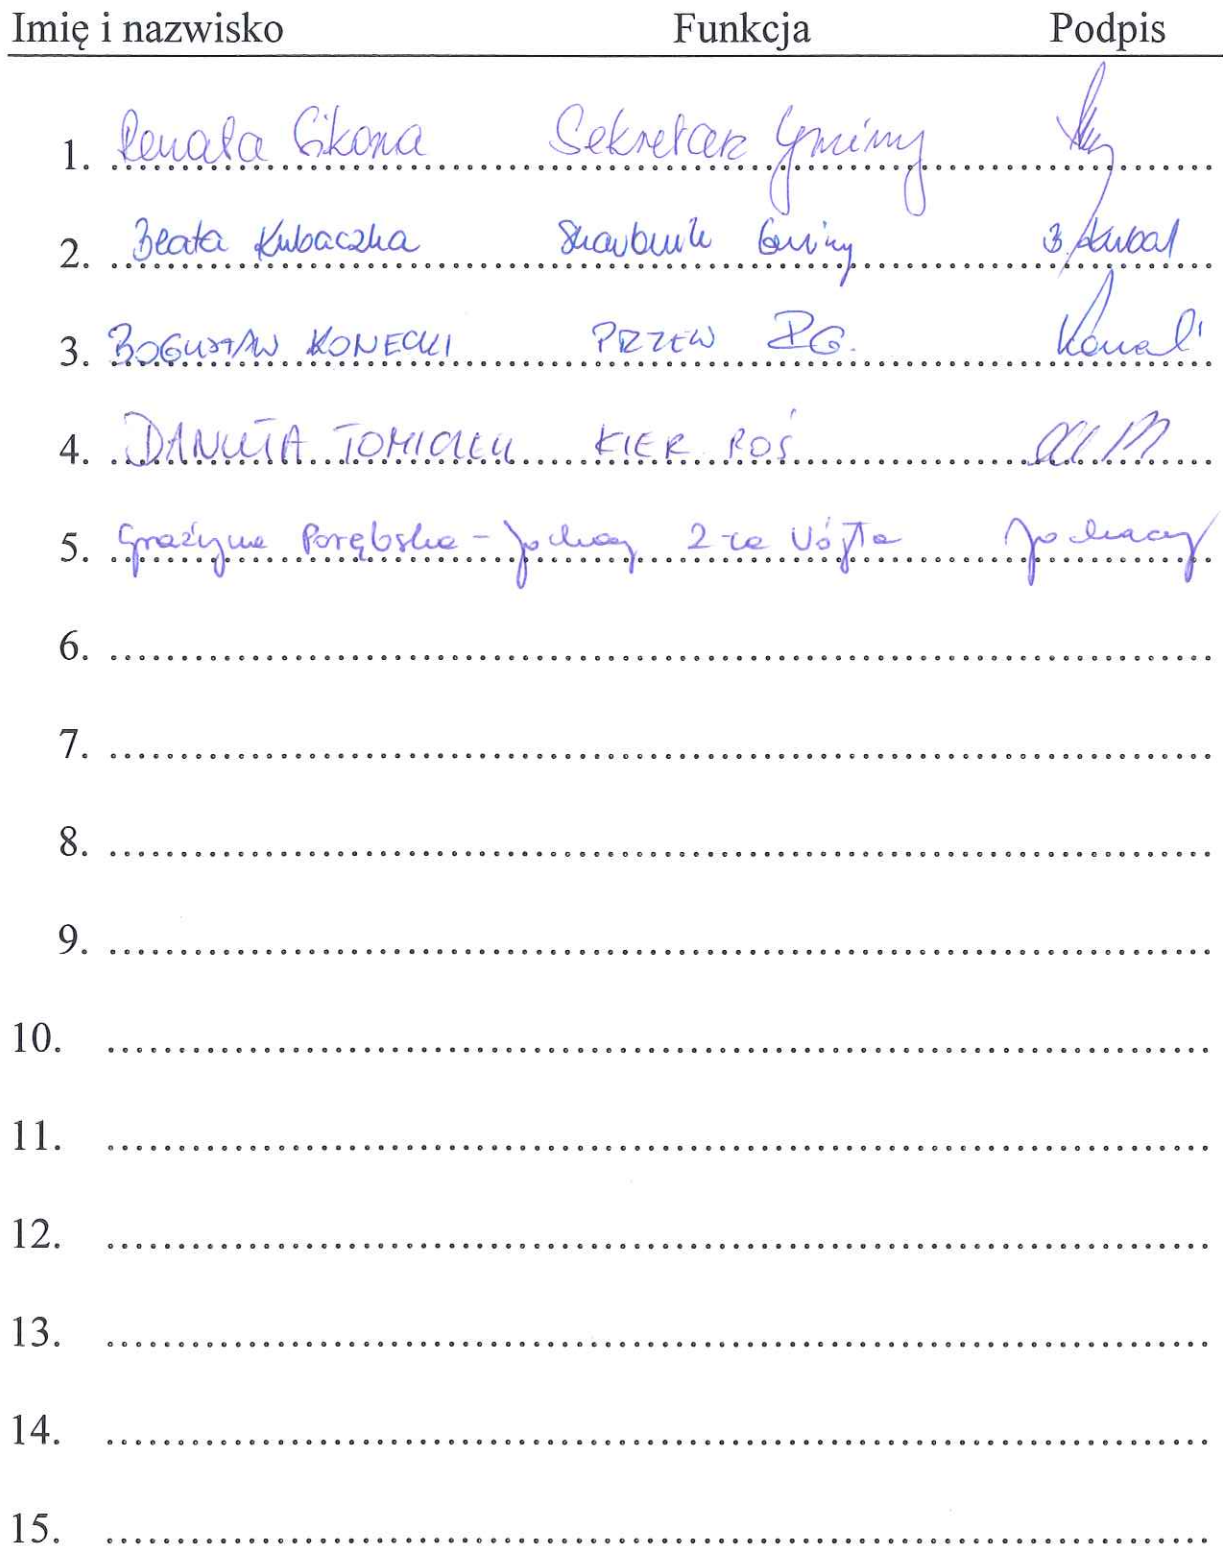 Imię i nazwisko Funkcja Podpis
1. Renata Cikona Sekretarz Gminy
2. Beata Kubaczka Skarbnik Gminy
3. BOGUSŁAW KONECKI PRZEW RG.
4. DANUTA KIER ROŚ
5. Grażyna Porębska - Jochacy Z-ca Wójta Jochacy
6.
7.
8.
9.
10.
11.
12.
13.
14.
15.